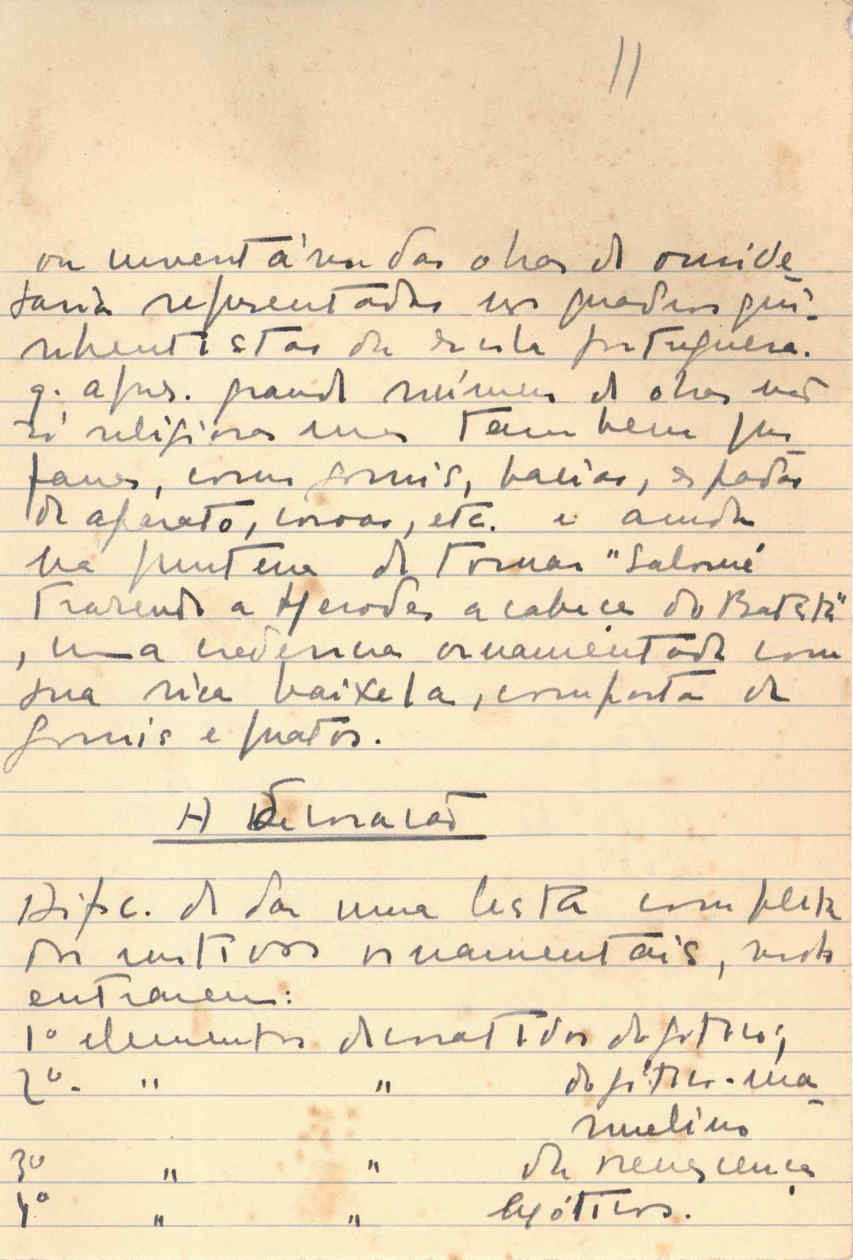 11
ou inventário das obras de ourive
saria representadas nos quadros qui-
nhentistas da escola portuguesa.
q. apres. grande número de obras não
só religiosas mas tambem pro
fanas, como gomis, bacias, espadas
de aparato, coroas, etc. e ainda
na pintura de Tomar "Salomé
trazendo a Herodes a cabeça do Batista"
, uma credencia ornamentada com
sua rica baixela, composta de
gomis e pratos.
A Decoração
Dific. de dar uma lista completa
dos motivos ornamentais, onde
entrarem:
1º elementos decorativos do gotico;
2º - " " do gótico-ma
nuelino
3º " " da renascença
4º " " exóticos.